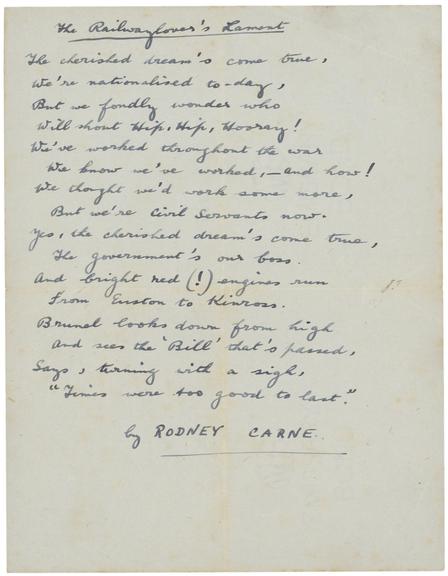 The Railwaylover's Lament
The cherished dream's come true,
We're nationalised to-day,
But we fondly wonder who
Will shout Hip, Hip, Hooray!
We've worked throughout the war
We know we've worked, — and how!
We thought we'd work some more,
But we're Civil Servants now.
Yes, the cherished dream's come true,
The government's our boss.
And bright red (!) engines run
From Euston to Kinross.
Brunel looks down from high
And sees the 'Bill' that's passed,
Says, turning with a sigh,
"Times were too good to last."
by RODNEY CARNE.